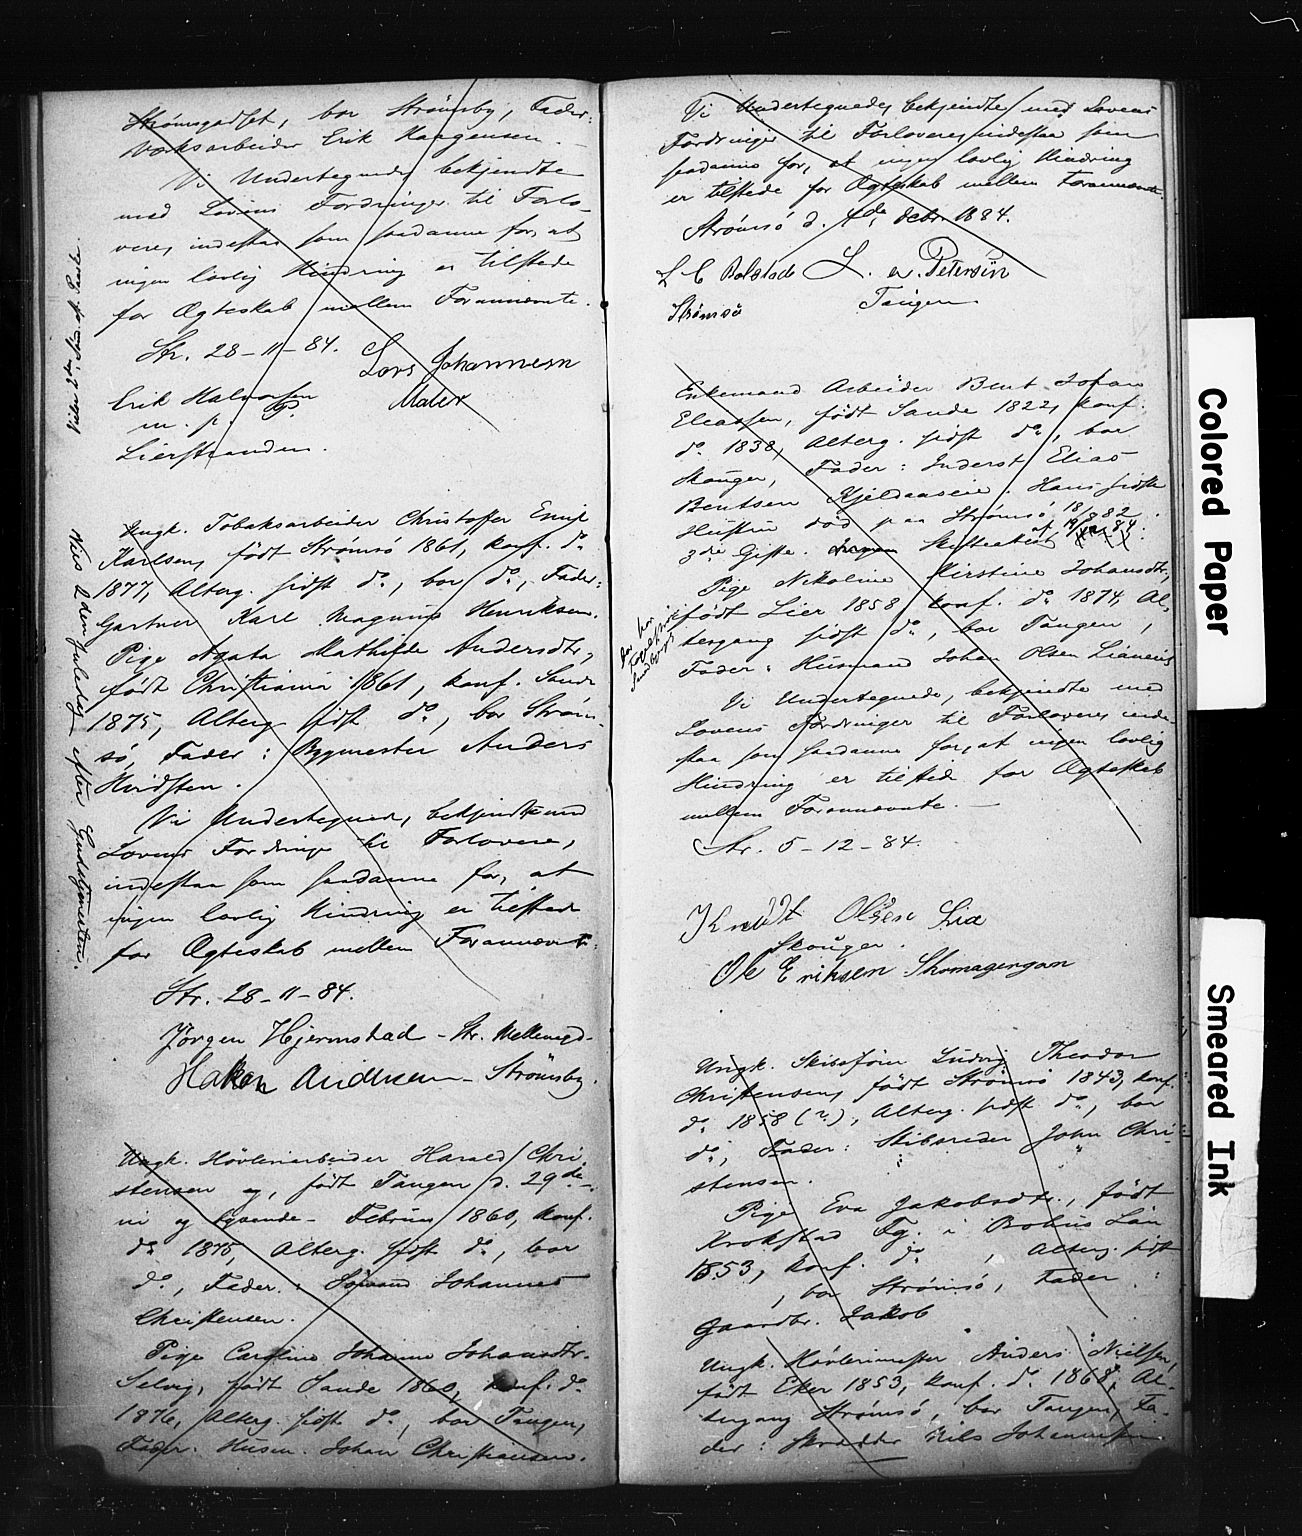 Strømsgodset, bor Strømsby, Fader:
Værksarbeider Erik Haagensen. —
Vi Undertegnede, bekjendte
med Lovens Fordringer til Forlo-
vere, indestaa som saadanne for, at
ingen lovlig Hindring er tilstede
for Ægteskab mellem Forannævnte.
Str. 28-11-84. Lars Johannesen
Maler
Erik Halvorsen
m. p.
Lierstranden.
Ungk. Tobaksarbeider Christoffer Emil
Karlsen, født Strømsö 1861, konf. do
1877, Alterg. sidst do, bor do, Fader:
Gartner Karl Magnus Henriksen.
Pige Agata Mathilde Andersdtr,
født Christiania 1861, konf. Sande
1875, Alterg. sidst do, bor Strøm-
sö, Fader: Bygmester Anders
Hvidsten.
Vi Undertegnede, bekjendte med
Lovens Fordringer til Forlovere,
indestaa som saadanne for, at
ingen lovlig Hindring er tilstede
for Ægteskab mellem Forannævnte.
Str. 28-11-84.
Jörgen Hjermstad - Str.
Haken Andersen - Strömsby.
Vies 2den Juledag efter Gudstjenesten.
Ungk. Høvleriarbeider Harald Chri-
stensen, født Tangen d. 29de-
ni og tyvende - Februar 1860, konf.
do 1875, Alterg. sidst do, bor
do, Fader: Sømand Johannes
Christensen.
Pige Caroline Johanne Johansdtr.
Selvig, født Sande 1860, konf. do
1876, Alterg. sidst do, bor Tangen,
Fader: Husm. Johan Christiansen.
Vi Undertegnede, bekjendte med Lovens
Fordringer til Forlovere, indestaa som
saadanne for, at ingen lovlig Hindring
er tilstede for Ægteskab mellem Forannævnte
Strömsö d. 4de Debr. 1884.
L C Bolstad L. A. Petersen
Strømsö Tangen
Enkemand Arbeider Bent Johan
Eliassen, født Sande 1822, konf.
do 1838, Alterg. sidst do, bor
Skouger, Fader: Inderst Elias
Bentsen Kjeldaaseie. Hans sidste
Hustru død paa Strømsö 18/8 82.
3die Gifte. Skifteattest af
Pige Nikoline Kirstine Johansdtr,
født Lier 1858, konf. do 1874, Al-
tergang sidst do, bor Tangen,
Fader: Husmand Johan Olsen Lianeie
Vi Undertegnede, bekjendte med
Lovens Fordringer til Forlovere, inde-
staa som saadanne for, at ingen lovlig
Hindring er tilstede for Ægteskab
mellem Forannævnte. —
Str. 5-12-84.
Knudt Olsen Lia
Skouger.
Ole Eriksen Skomagergan
Ungk. Skibsfører Ludvig Theodor
Christensen, født Strømsö 1843, konf.
do 1858 (?), Alterg. sidst do, bor
do, Fader: Skibsreder John Chri-
stensen.
Pige Eva Jakobsdtr., født
Krokstad Sg. i Bohus Län
1853, konf. do, Alterg. sidst
, bor Strømsö, Fader:
Gaardbr. Jakob
Ungk. Høvlerimester Anders Nielsen,
født Eker 1853, konf. do 1868, Al-
tergang Strømsö, bor Tangen, Fa-
der: Skrædder Nils Johannessen.
Colored Paper
Smeared Ink